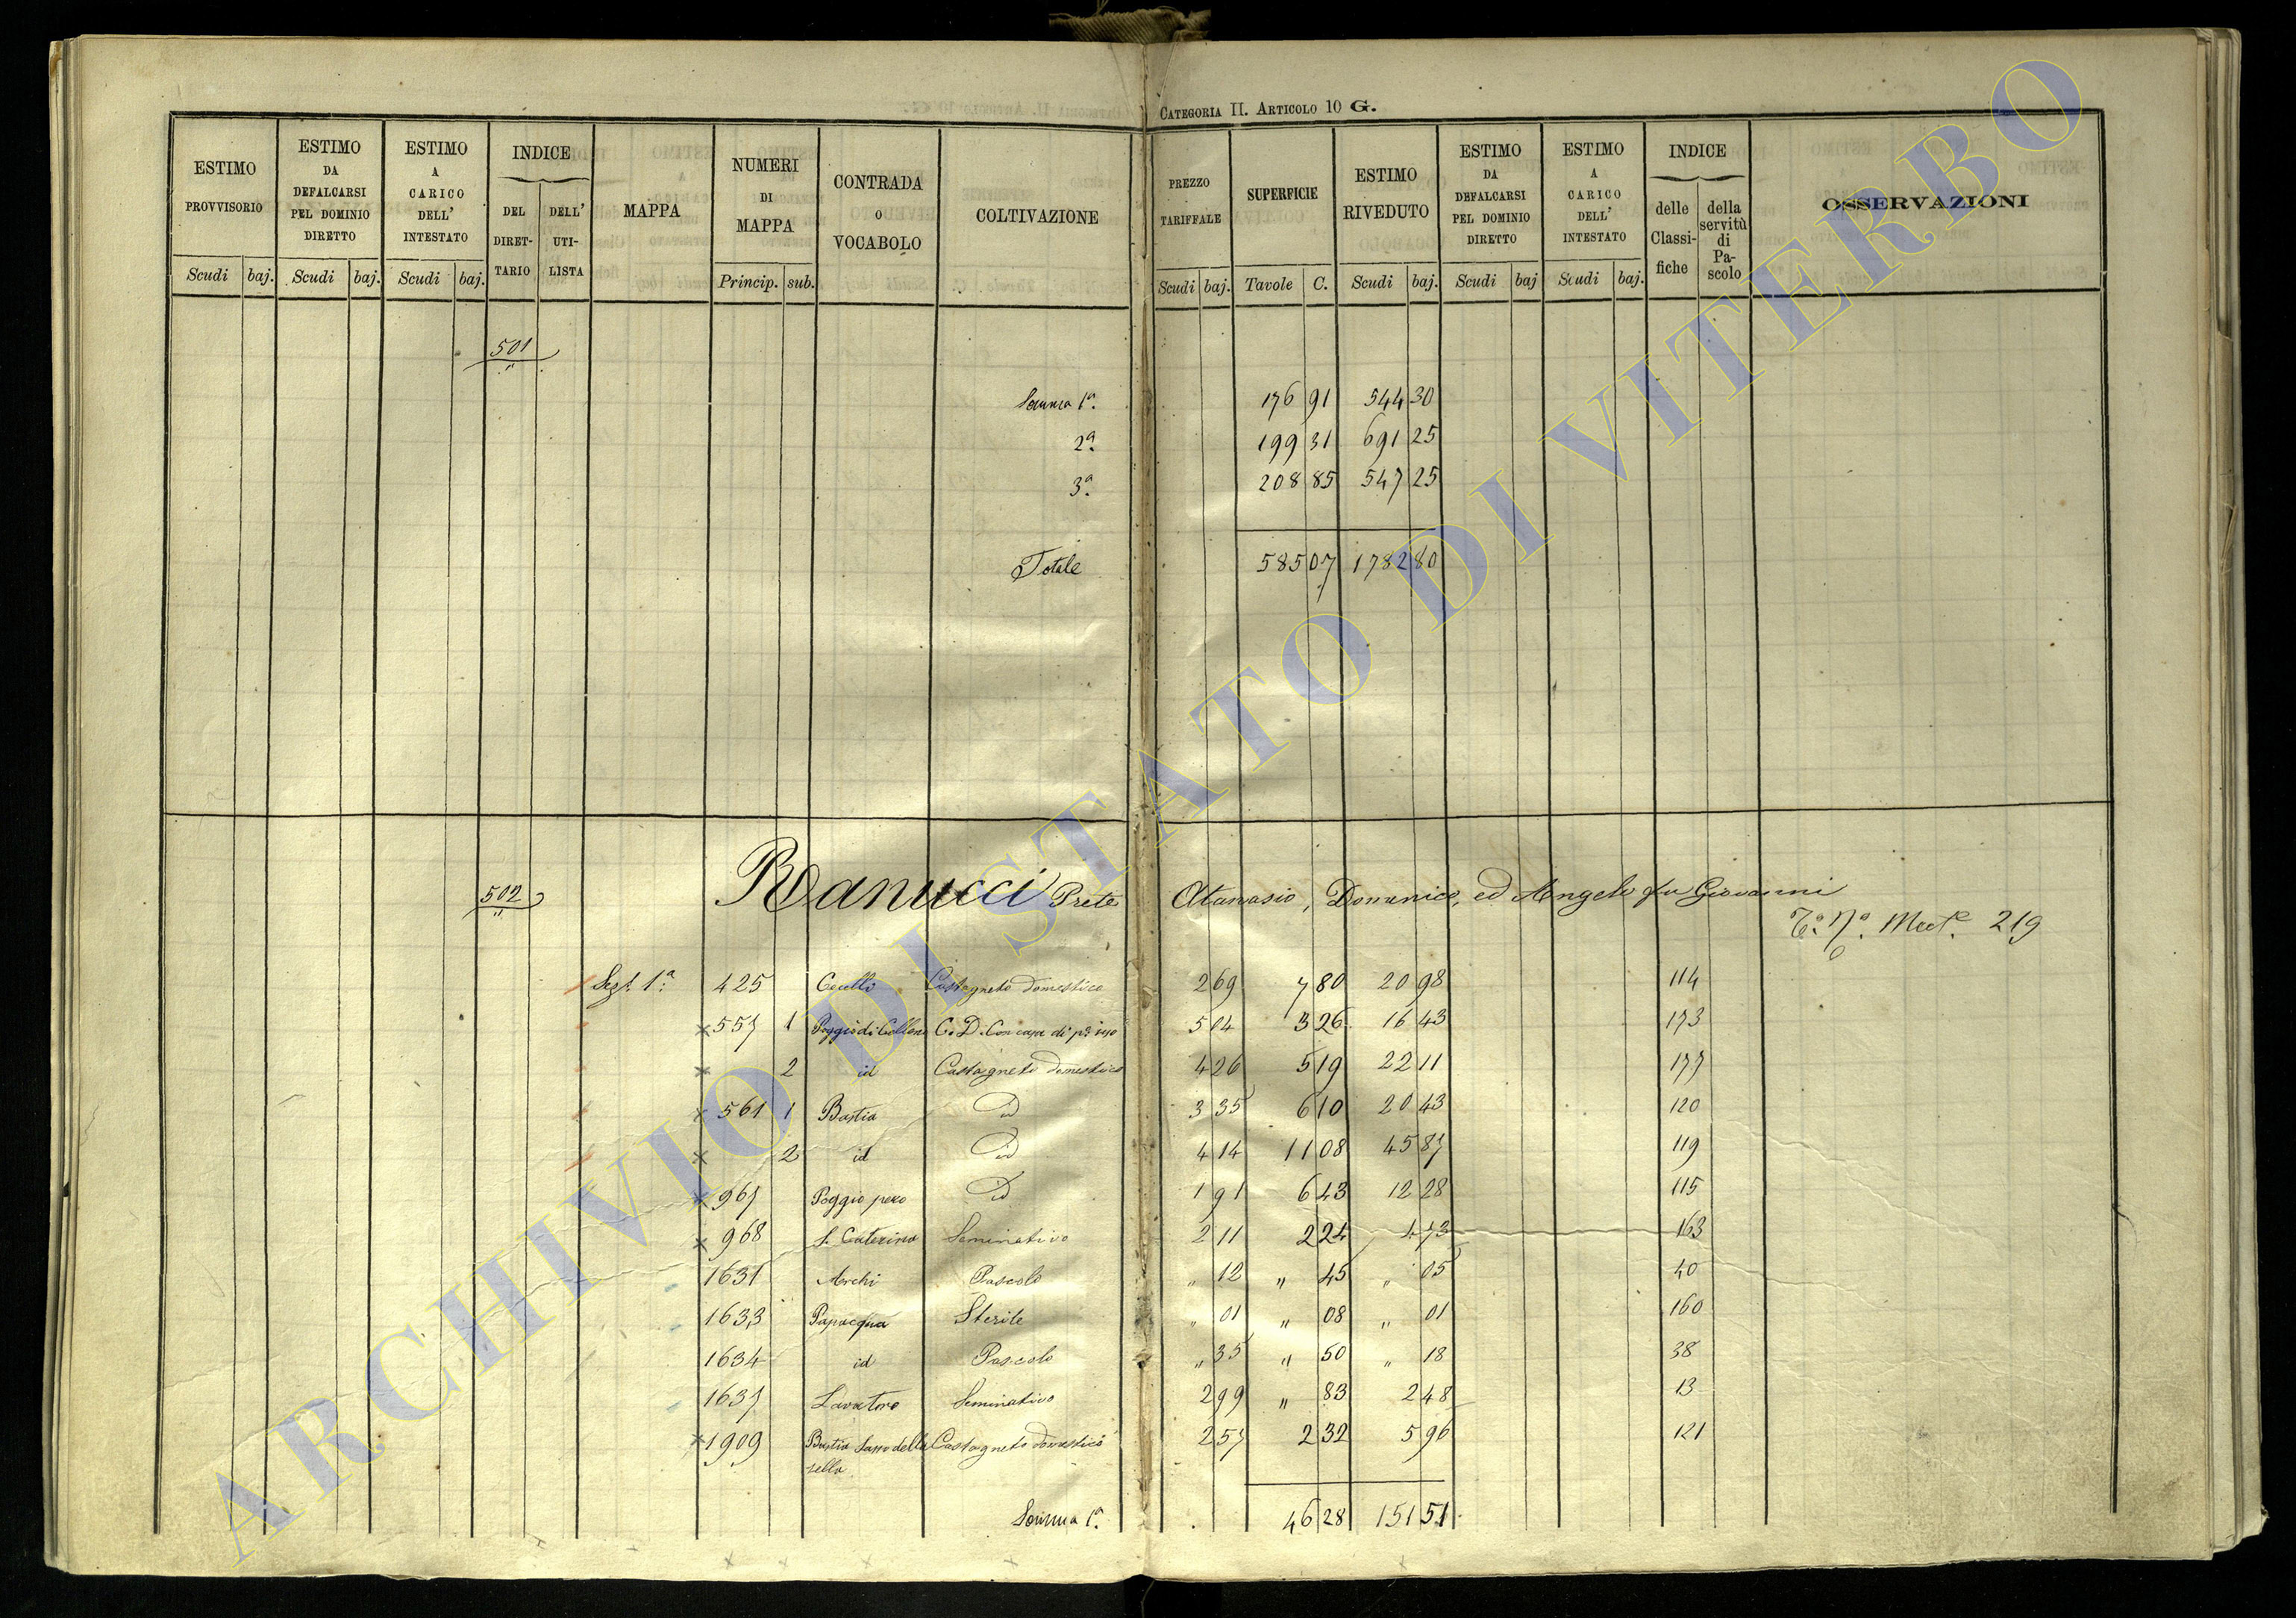 CATEGORIA II. ARTICOLO 10 G.
ESTIMO PROVVISORIO Scudi baj. ESTIMO DA DEFALCARSI PEL DOMINIO DIRETTO Scudi baj. ESTIMO A CARICO DELL' INTESTATO Scudi baj. INDICE DEL DIRET-TARIO DELL' UTI-LISTA MAPPA NUMERI DI MAPPA Princip. sub. CONTRADA O VOCABOLO COLTIVAZIONE PREZZO TARIFFALE Scudi baj. SUPERFICIE Tavole C. ESTIMO RIVEDUTO Scudi baj. ESTIMO DA DEFALCARSI PEL DOMINIO DIRETTO Scudi baj ESTIMO A CARICO DELL' INTESTATO Scudi baj. INDICE delle Classi-fiche della servitù di Pa-scolo OSSERVAZIONI
501
Somma 1ª. 176 91 544 30
2ª. 199 31 691 25
3ª. 208 85 547 25
Totale 585 07 1782 80
502 Ranucci Prete Atanasio, Domenico, ed Angelo fu Giovanni
219
Sez. 1ª. 425 Cecelli Castagneto domestico 2 69 7 80 20 98 114
557 1 Poggio di C. D. Con casa di 5 04 3 26 16 43 173
2 id Castagneto domestico 4 26 5 19 22 11 177
561 1 Bastia id 3 35 6 10 20 43 120
2 id id 4 14 11 08 45 87 119
967 Poggio pero id 1 91 6 43 12 28 115
968 S. Caterina Seminativo 2 11 2 24 4 73 163
1631 Archi Pascolo " 12 " 45 " 05 40
1633 Papacqua Sterile " 01 " 08 " 01 160
1634 id Pascolo " 35 " 50 " 18 38
1637 Lavatore Seminativo 2 99 " 83 2 48 13
1909 Bastia Sasso della Castagneto domestico 2 57 2 32 5 96 121
sella
Somma 1ª. 46 28 151 51
ARCHIVIO DI STATO DI VITERBO